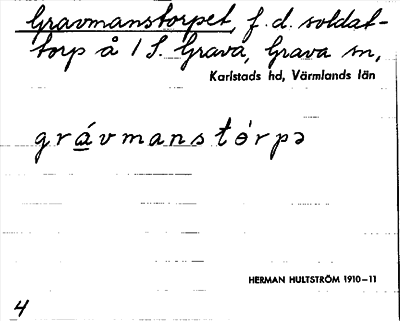 Gravmanstorpet, f.d. soldat-
torp å 1 S. Grava, Grava sn,
Karlstads hd, Värmlands län
grávmanstórpə
HERMAN HULTSTRÖM 1910–11
4